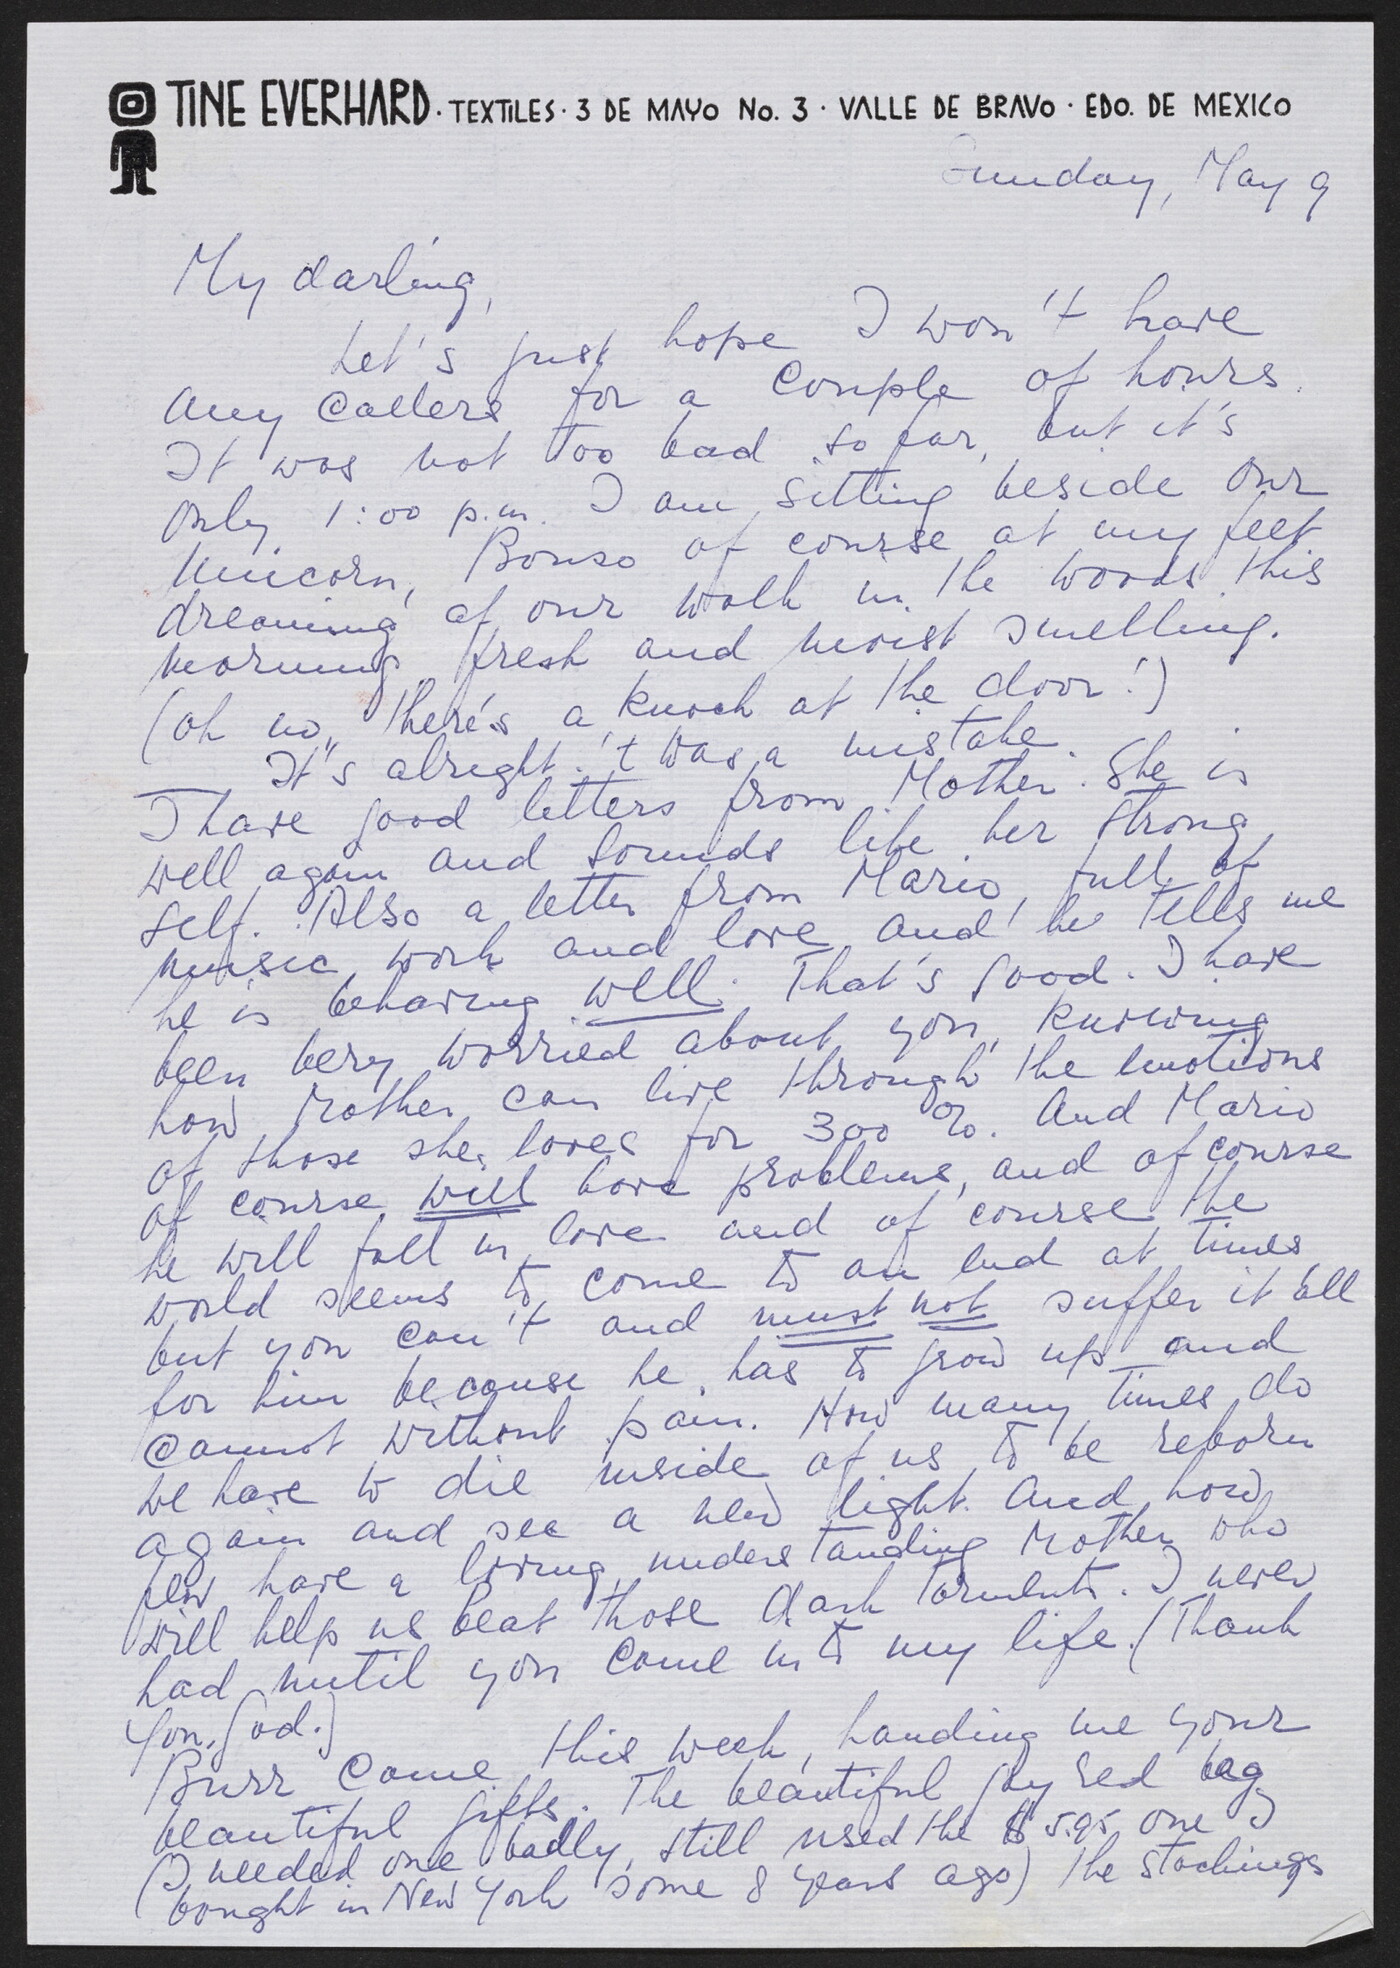 TINE EVERHARD · TEXTILES · 3 DE MAYO No. 3 · VALLE DE BRAVO · EDO. DE MEXICO
Sunday, May 9
My darling,
Let's just hope I won't have
any callers for a couple of hours.
It was not too bad so far, but it's
only 1:00 p.m. I am sitting beside our
Unicorn, Bonso of course at my feet
dreaming of our walk in the woods this
morning, fresh and moist smelling.
(oh no, there's a knock at the door!)
It's alright. 't was a mistake.
I have good letters from Mother. She is
well again and sounds like her strong
self. Also a letter from Mario, full of
music, work and love and he tells me
he is behaving well. That's good. I have
been very worried about you, knowing
how Mother can live through the emotions
of those she loves for 300 %. And Mario
of course will have problems, and of course
he will fall in love and of course the
world seems to come to an end at times
but you can't and must not suffer it all
for him because he has to grow up and
cannot without pain. How many times do
we have to die inside of us to be reborn
again and see a new light. And how
few have a loving, understanding Mother who
will help us beat those dark torments. I never
had until you came into my life. (Thank
you, God.)
Burr came this week, handing me your
beautiful gifts. The beautiful gay red bag
(I needed one badly, still used the $ 5.95 one I
bought in New York some 8 years ago) The stockings